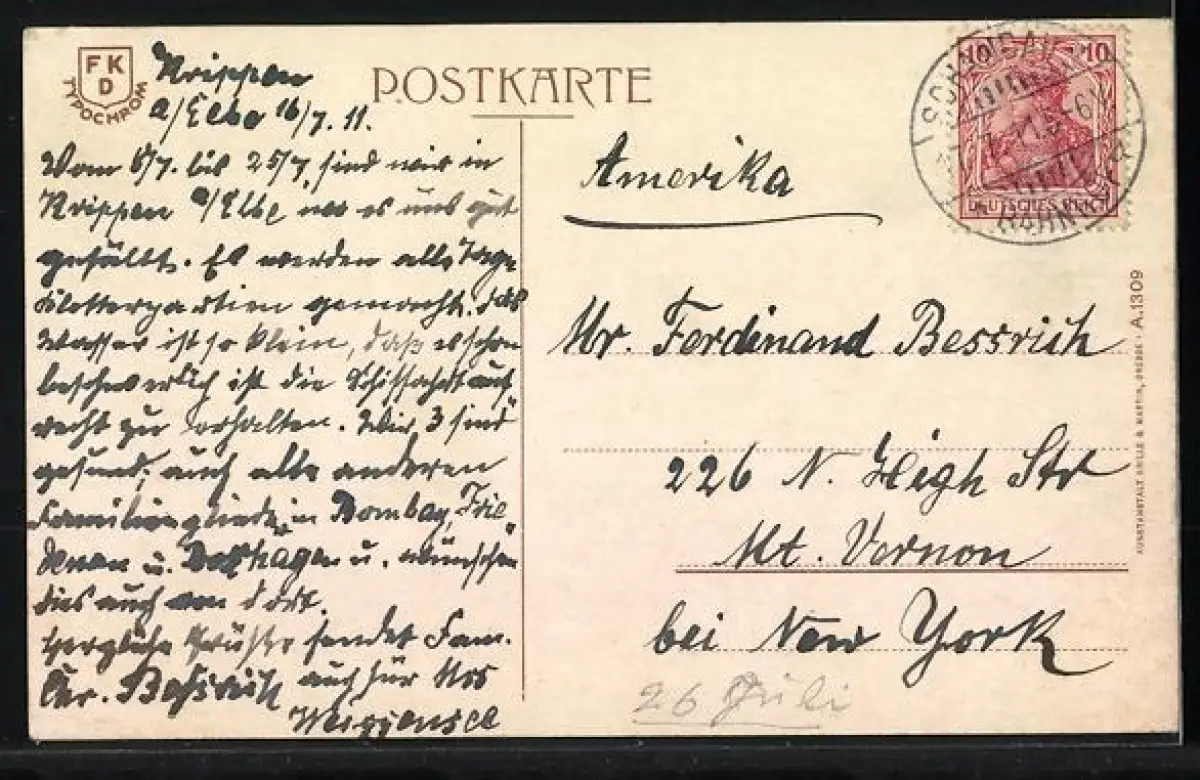 FKD
TYPOCHROM
POSTKARTE
Krippen
a/Elbe 16/7. 11.
Vom 6/7. bis 25/7, sind wir in
Krippen a/Elbe wo es uns gut
gefällt. Es werden alle Tage
Kletterpartien gemacht. Das
Wasser ist so klein, daß es schon
beschwerlich ist die Schiffahrt auf-
recht zu erhalten. Wir 3 sind
gesund, auch alle anderen
Familienglieder in Bombay,
u. u. wünschen
dies auch von dort.
Herzliche Grüße sendet Fam.
Chr. Bessrich auch für Mrs
Amerika
Mr. Ferdinand Bessrich
226 N. High Str
Mt. Vernon
bei New York
26 Juli
10 10
DEUTSCHES REICH
SCHANDAU
BAHNHOF
KUNSTANSTALT KRILLE & MARTIN, DRESDEN • A.1309